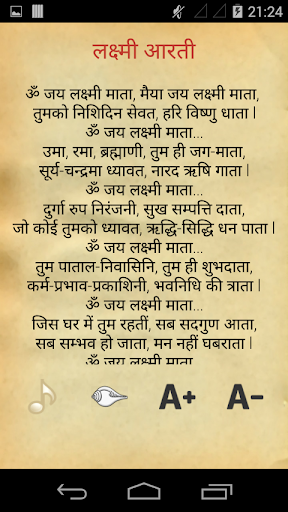 21:24
लक्ष्मी आरती
ॐ जय लक्ष्मी माता, मैया जय लक्ष्मी माता,
तुमको निशिदिन सेवत, हरि विष्णु धाता |
ॐ जय लक्ष्मी माता...
उमा, रमा, ब्रह्माणी, तुम ही जग-माता,
सूर्य-चन्द्रमा ध्यावत, नारद ऋषि गाता |
ॐ जय लक्ष्मी माता...
दुर्गा रुप निरंजनी, सुख सम्पत्ति दाता,
जो कोई तुमको ध्यावत, ऋद्धि-सिद्धि धन पाता |
ॐ जय लक्ष्मी माता...
तुम पाताल-निवासिनि, तुम ही शुभदाता,
कर्म-प्रभाव-प्रकाशिनी, भवनिधि की त्राता |
ॐ जय लक्ष्मी माता...
जिस घर में तुम रहतीं, सब सदगुण आता,
सब सम्भव हो जाता, मन नहीं घबराता |
ॐ जय लक्ष्मी माता
A+ A-